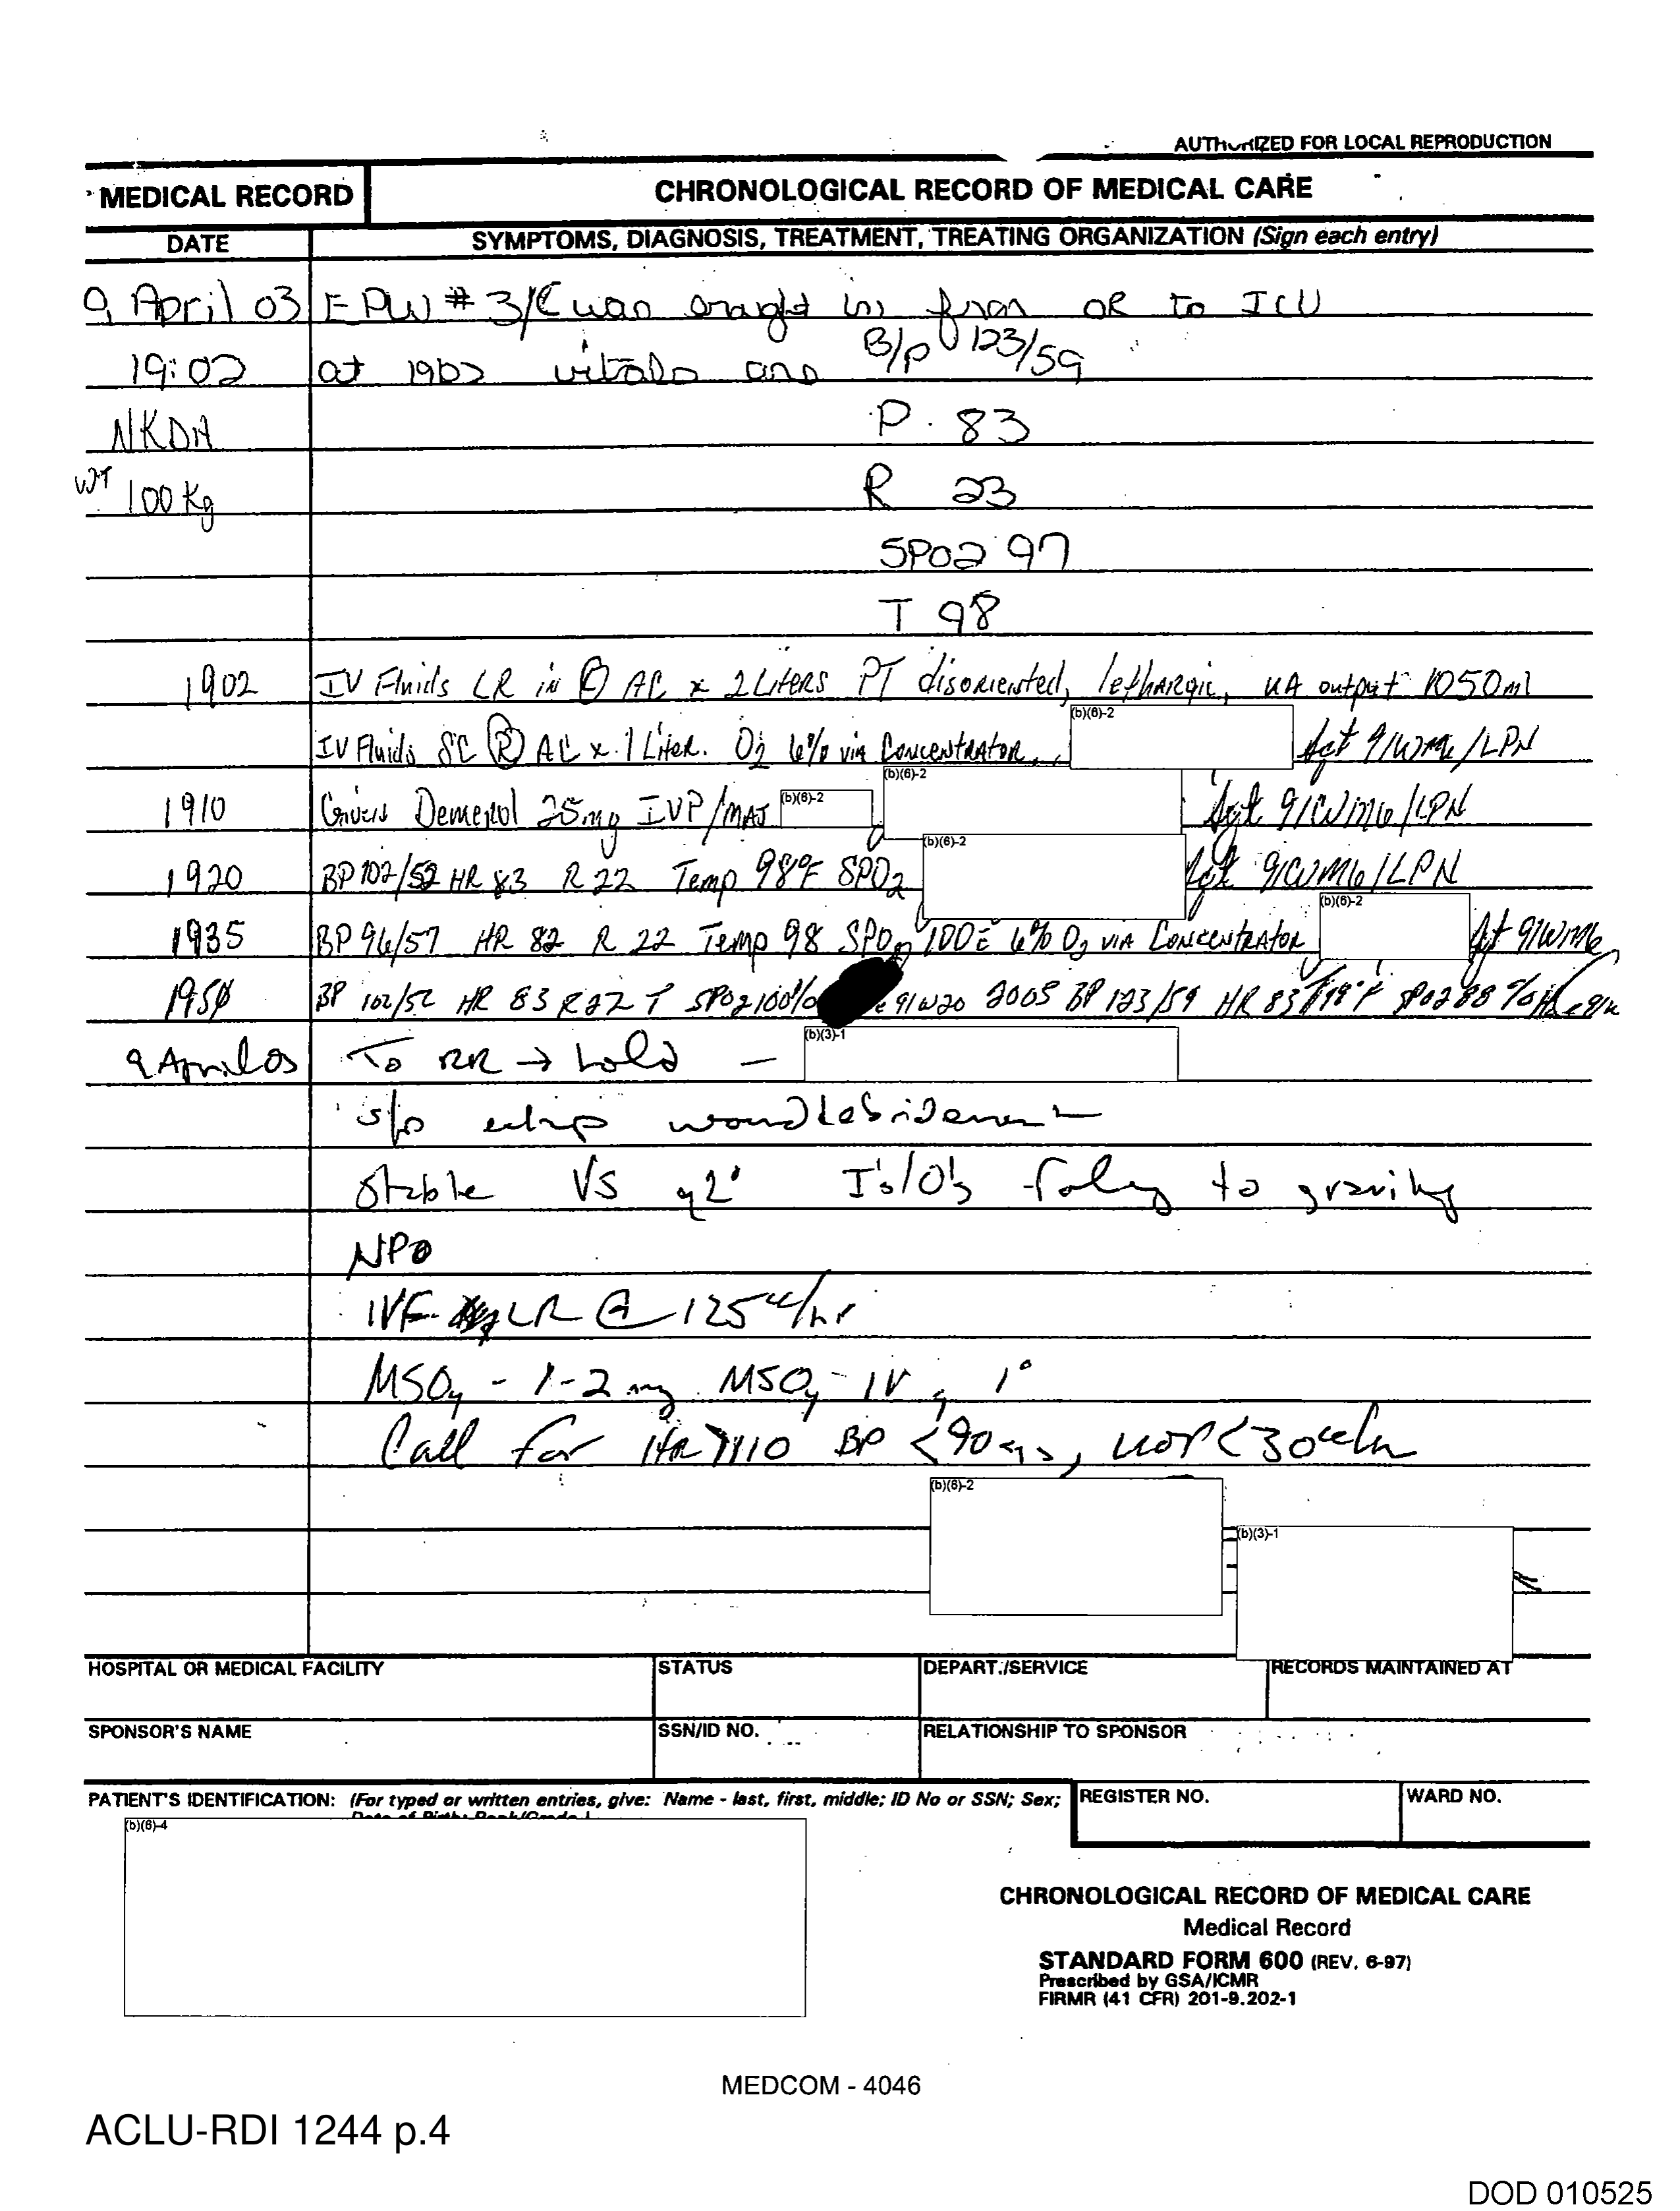 AUTHORIZED FOR LOCAL REPRODUCTION
MEDICAL RECORD
CHRONOLOGICAL RECORD OF MEDICAL CARE
DATE
SYMPTOMS, DIAGNOSIS, TREATMENT, TREATING ORGANIZATION (Sign each entry)
9 April 03 EPW #3/C was braught in from OR to ICU
19:02 at 1902 vitals are B/P 123/59
NKDA P. 83
WT 100 Kg R 23
SPO2 97
T 98
1902 IV Fluids LR in AC x 2 Liters PT disoriented, lethargic, UA output 1050ml
(b)(6)-2
IV Fluids SC Ⓡ AC x 1 Liter. O2 6% via Concentrator Sgt 91WM6/LPN
(b)(6)-2
1910 Given Demerol 25mg IVP/MAJ (b)(6)-2 Sgt 91WM6/LPN
(b)(6)-2
1920 BP 102/52 HR 83 R 22 Temp 98°F SPO2 Sgt 91WM6/LPN
(b)(6)-2
1935 BP 96/57 HR 82 R 22 Temp 98 SPO2 100 c 6% O2 VIA Concentrator Sgt 91WM6
1950 BP 102/52 HR 83 R 22 T SPO2 100% 91W20 2005 BP 123/59 HR 83 98°F SPO2 88%
9 April 03 To RR → hold — (b)(3)-1
s/p wound debridement
Stable VS q2° I's/O's foley to gravity
NPO
IVF LR @ 125cc/hr
MSO4 - 1-2 mg MSO4 IV q 1°
Call for HR >110 BP <90 sys, UOP <30cc/hr
(b)(6)-2
(b)(3)-1
HOSPITAL OR MEDICAL FACILITY
STATUS
DEPART./SERVICE
RECORDS MAINTAINED AT
SPONSOR'S NAME
SSN/ID NO.
RELATIONSHIP TO SPONSOR
PATIENT'S IDENTIFICATION: (For typed or written entries, give: Name - last, first, middle; ID No or SSN; Sex;
Date of Birth; Rank/Grade.)
REGISTER NO.
WARD NO.
(b)(6)-4
CHRONOLOGICAL RECORD OF MEDICAL CARE
Medical Record
STANDARD FORM 600 (REV. 6-97)
Prescribed by GSA/ICMR
FIRMR (41 CFR) 201-9.202-1
MEDCOM - 4046
ACLU-RDI 1244 p.4
DOD 010525